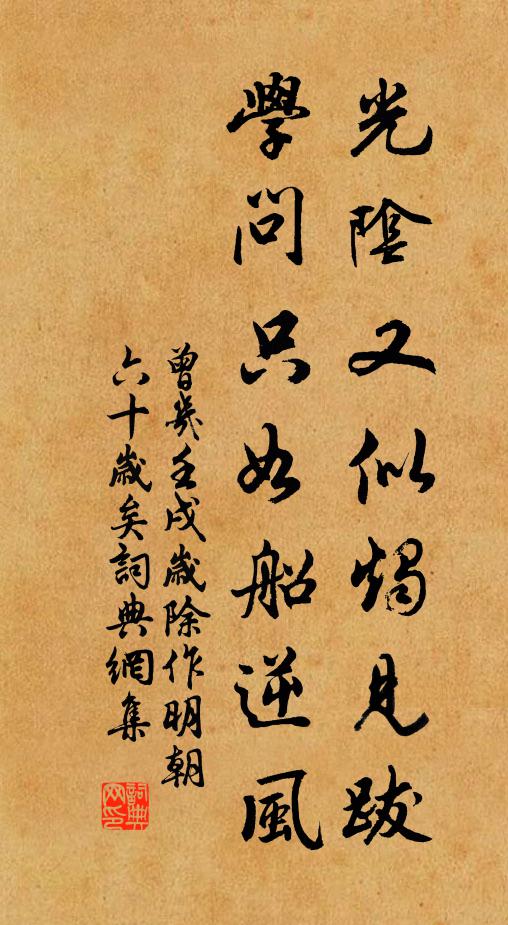 光陰又似燭見跋
學問只如船逆風
曾幾壬戌歲除作明朝
六十歲矣詞典網集
詞典网印